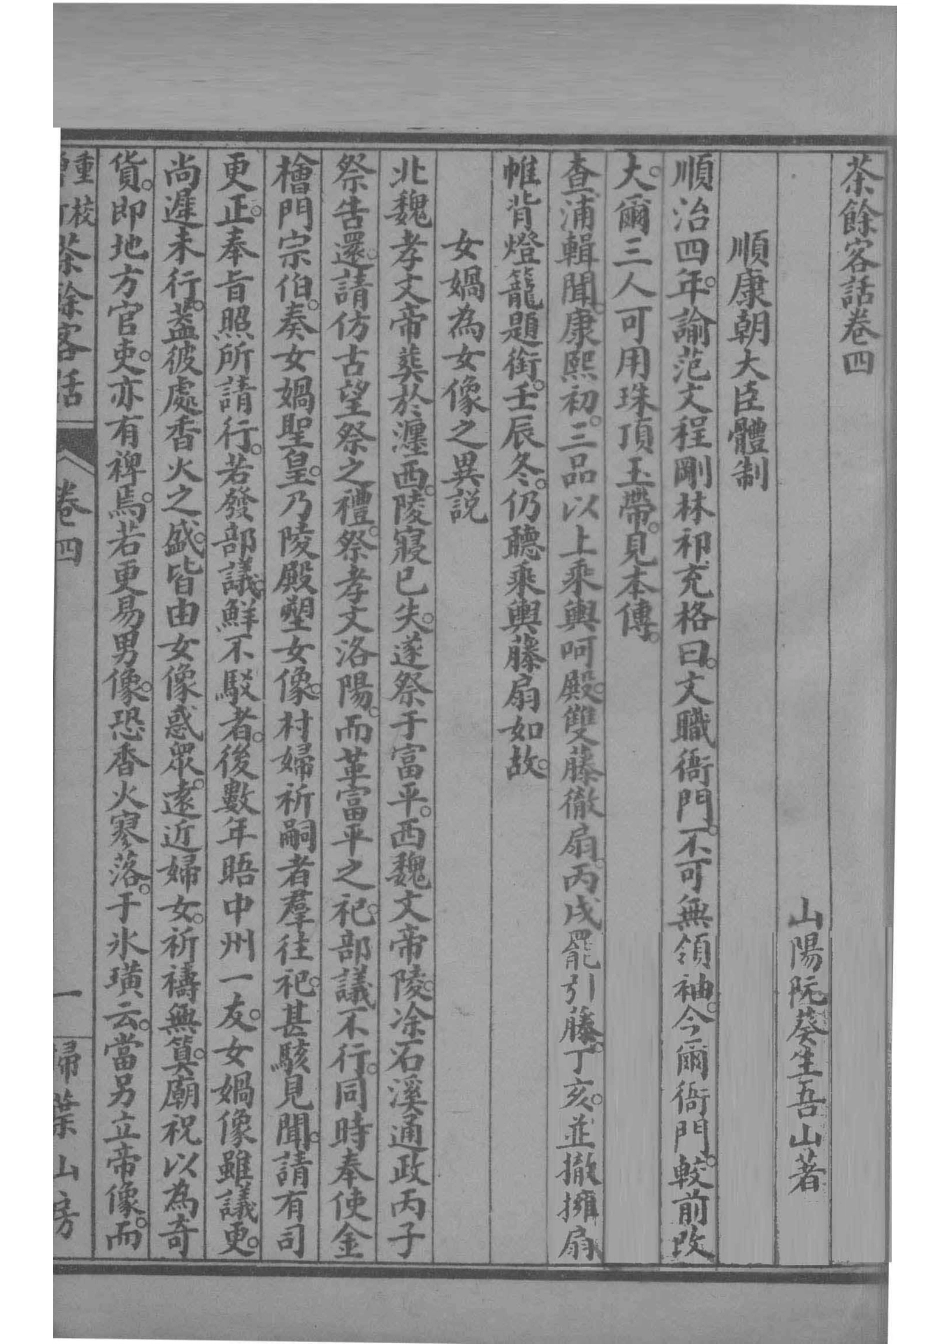 茶餘客話卷四
山陽阮葵生吾山著
順康朝大臣體制
順治四年。諭范文程剛林祁充格曰。文職衙門。不可無領袖。今爾衙門。較前改
大。爾三人可用珠頂玉帶。見本傳。
查浦輯聞。康熙初。三品以上乘輿呵殿。雙藤徹扇。丙戌罷引藤。丁亥。並撤擁扇
帷背燈籠題銜。壬辰冬。仍聽乘輿藤扇如故。
女媧為女像之異説
北魏孝文帝葬於瀍西。陵寢已失。遂祭于富平。西魏文帝陵。涂石溪通政丙子
祭告還。請仿古望祭之禮。祭孝文洛陽。而革富平之祀。部議不行。同時奉使金
檜門宗伯。奏女媧聖皇。乃陵殿塑女像。村婦祈嗣者羣往祀。甚駭見聞。請有司
更正。奉旨照所請行。若發部議。鮮不駁者。後數年晤中州一友。女媧像雖議更。
尚遲未行。葢彼處香火之盛。皆由女像惑眾。遠近婦女。祈禱無算。廟祝以為奇
貨。即地方官吏。亦有裨焉。若更易男像。恐香火寥落。于氷璜云。當另立帝像。而
重校
茶餘客話
卷四
一
掃葉山房